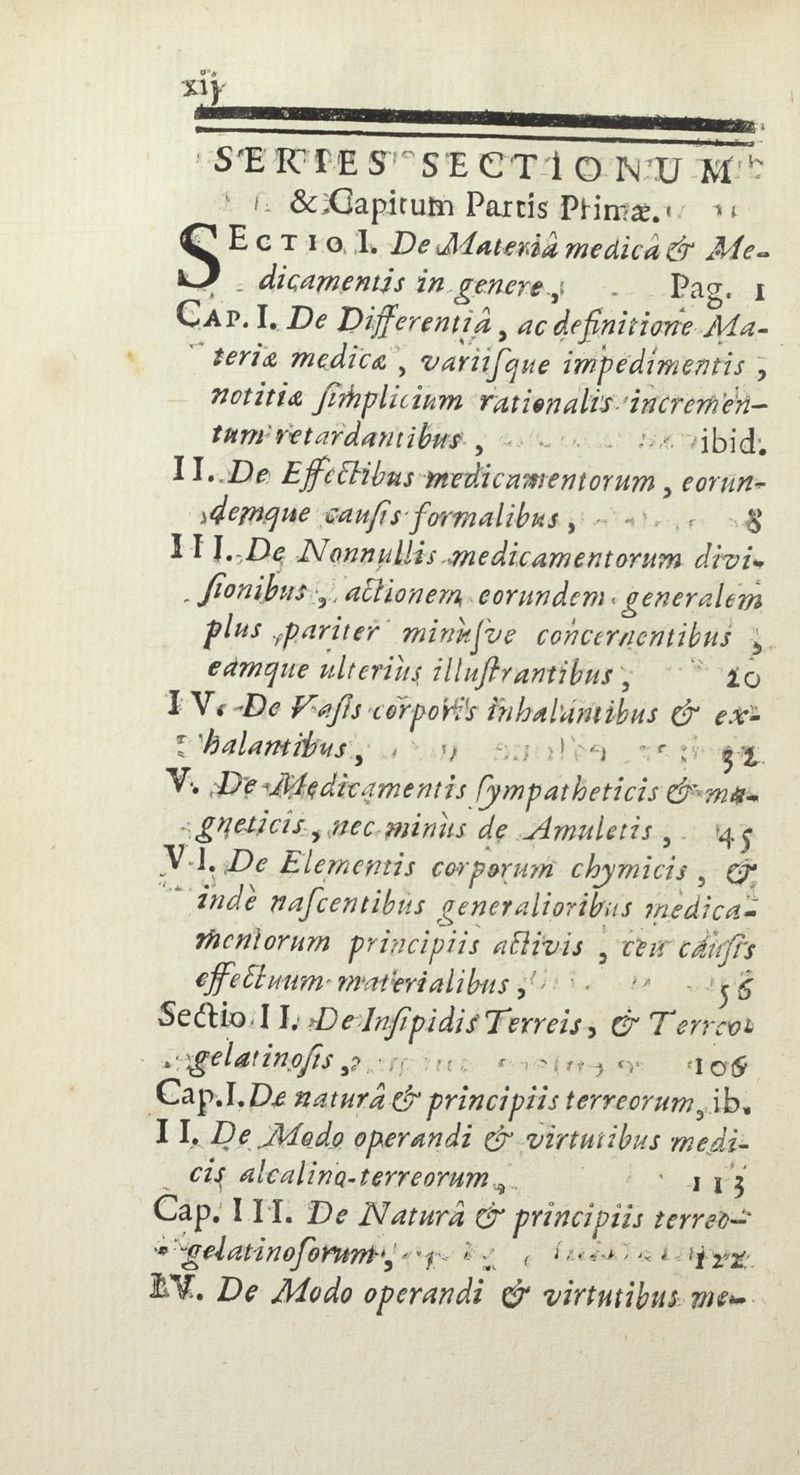 xij
SERIES SECTIONUM
& Capitum Partis Primæ.
SECTIO I. De Materiâ medicâ & Me-
dicamentis in genere, Pag. 1
CAP. I. De Differentiâ, ac definitione Ma-
teriæ medicæ, variiſque impedimentis,
notitiæ ſimplicium rationalis incremen-
tum retardantibus, ibid.
II. De Effectibus medicamentorum, eorun-
demque cauſis formalibus, 8
III. De Nonnullis medicamentorum divi-
ſionibus, actionem eorundem generalem
plus pariter minùſve concernentibus,
eamque ulteriùs illuſtrantibus, 20
IV. De Vaſis corporis inhalantibus & ex-
halantibus, 32
V. De Medicamentis ſympatheticis & ma-
gneticis, nec minùs de Amuletis, 45
VI. De Elementis corporum chymicis, &
indè naſcentibus generalioribus medica-
mentorum principiis activis, ceu cauſis
effectuum materialibus, 56
Sectio II. De Inſipidis Terreis, & Terreo-
gelatinoſis, 106
Cap. I. De naturâ & principiis terreorum, ib.
II. De Modo operandi & virtutibus medi-
cis alcalino-terreorum, 113
Cap. III. De Naturâ & principiis terreo-
gelatinoſorum, 122
IV. De Modo operandi & virtutibus me-